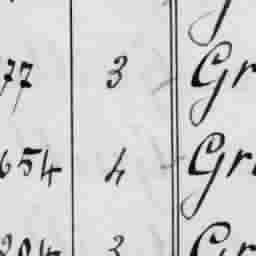 77 3 Gr
654 4 Gr
204 3 Gr